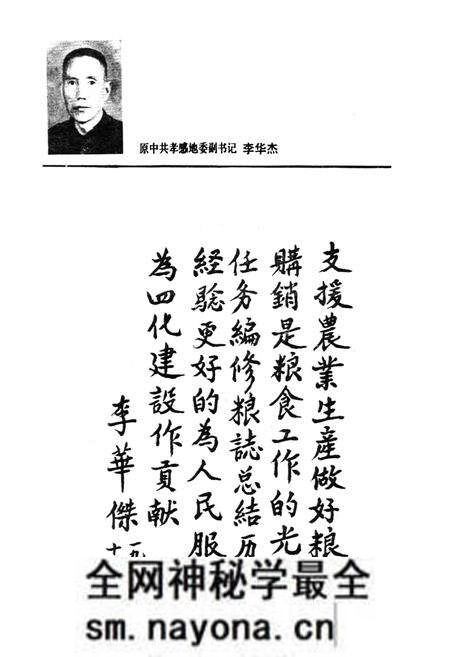 原中共孝感地委副书记 李华杰
支援農業生産做好粮
購銷是粮食工作的光
任务編修粮誌总结历
经驗更好的為人民服
為四化建設作貢献
李華傑
全网神秘学最全
sm.nayona.cn